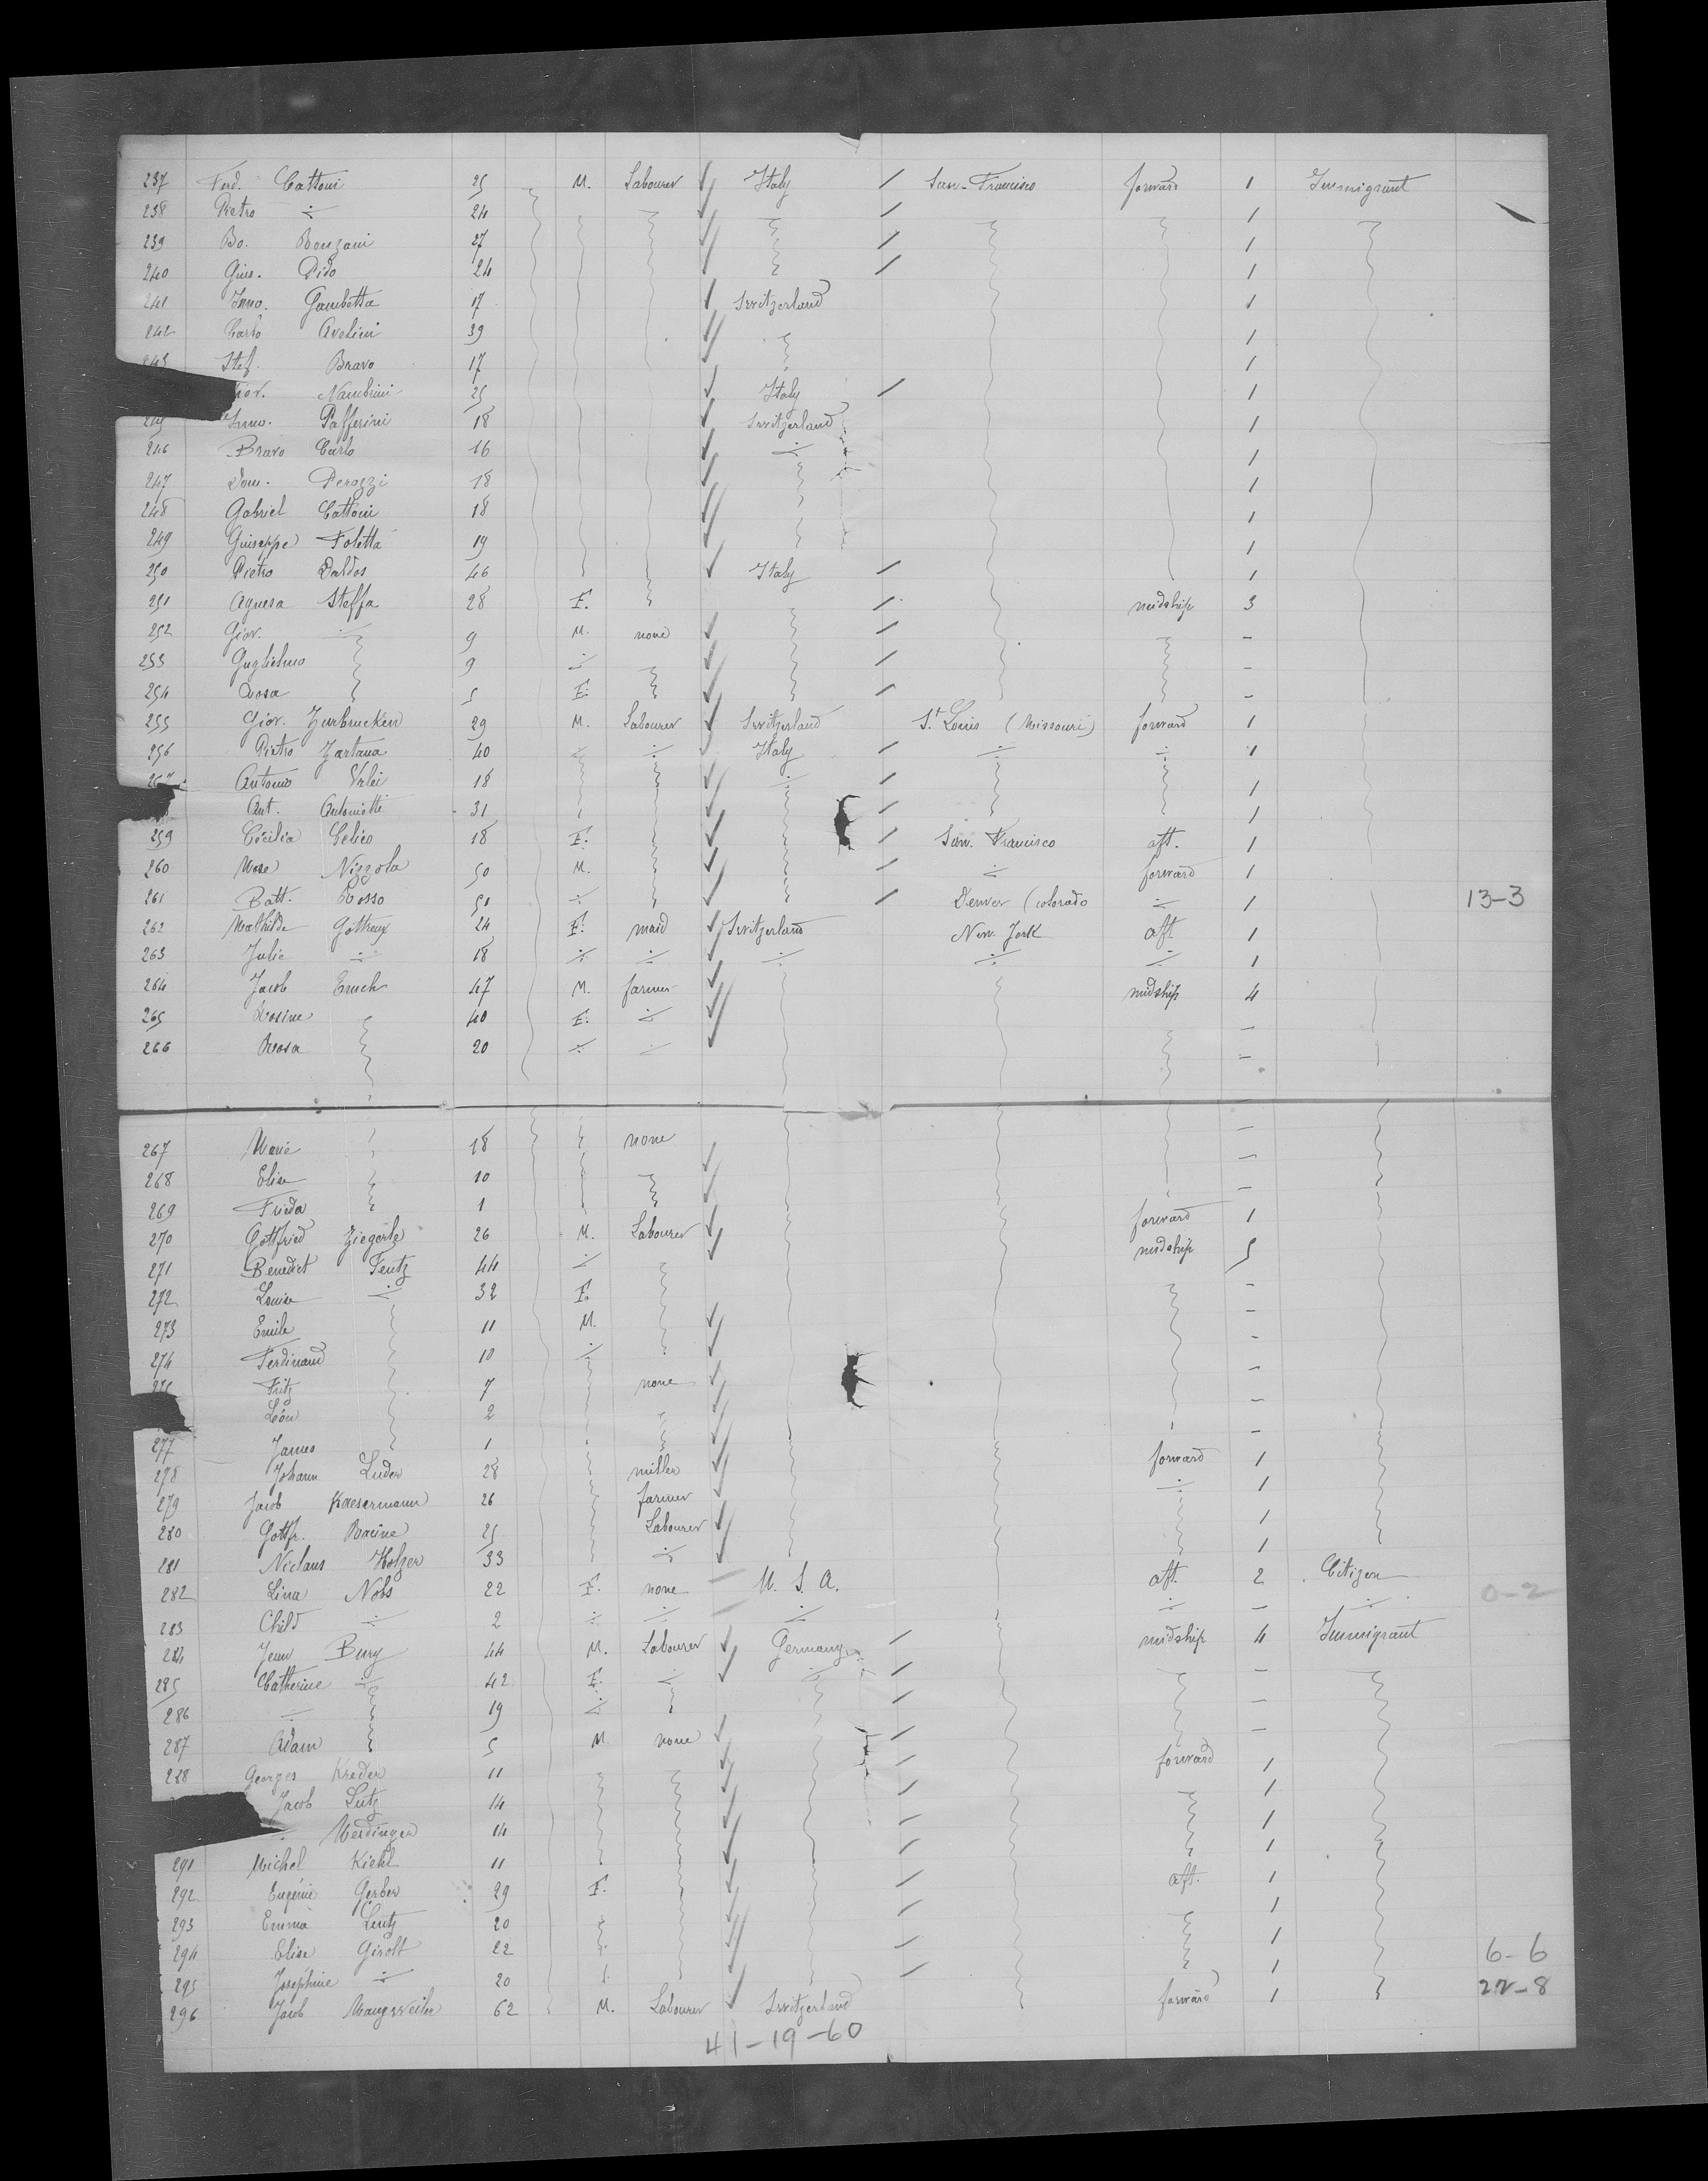 237 Ferd. Cattoni 25 M. Labourer Italy San-Francisco forward 1 Immigrant
238 Pietro ÷ 24 1
239 Bo. Bonzani 27 1
240 Gius. Dido 24 1
241 Inno. Gambetta 17 Switzerland 1
242 Carlo Avelini 39 1
243 Stef. Bravo 17 1
Giov. Nambrini 25 Italy 1
245 Inno. Pafferini 18 Switzerland 1
246 Bravo Carlo 16 ÷ 1
247 Dom. Perozzi 18 1
248 Gabriel Cattoni 18 1
249 Guiseppe Foletta 19 1
250 Pietro Daldos 46 Italy 1
251 Agnesa Steffa 28 F. midship 3
252 Giov. ÷ 9 M. none -
253 Guglielmo 9 ÷ -
254 Rosa 5 F. -
255 Giov. Zurbrucken 29 M. Labourer Switzerland St. Louis (Missouri) forward 1
256 Pietro Zartana 40 ÷ ÷ Italy ÷ ÷ 1
257 Antonio 18 ÷ 1
Ant. Antoniotti 31 1
259 Cécilia Celico 18 F. San. Francisco aft. 1
260 Mose Nizzola 50 M. ÷ forward 1
261 Batt. Rosso 51 ÷ Denver (Colorado ÷ 1 13-3
262 Mathilde Gottreux 24 F. maid Switzerland New. York aft 1
263 Julie ÷ 18 ÷ ÷ ÷ ÷ ÷ 1
264 Jacob Emch 47 M. farmer midship 4
265 Rosine 40 F. ÷ -
266 Rosa 20 ÷ ÷ -
267 Marie 18 none -
268 Elise 10 -
269 Frieda 1 -
270 Gottfried Ziegerle 26 M. Labourer forward 1
271 Benedict Feutz 44 ÷ midship 5
272 Louise ÷ 32 F. -
273 Emile 11 M. -
274 Ferdinand 10 ÷ -
275 Fritz 7 none -
Léon 2 -
277 James 1 -
278 Johann Luder 28 miller forward 1
279 Jacob Kaesermann 26 farmer ÷ 1
280 Gottfr. 25 Labourer 1
281 Niclaus Holzer 33 ÷ 1
282 Lina Nobs 22 F. none U. S. A. aft. 2 Citizen 0-2
283 Child ÷ 2 ÷ ÷ ÷ ÷ - ÷
284 Jean Bury 44 M. Labourer Germany midship 4 Immigrant
285 Catherine ÷ 42 F. ÷ ÷ -
286 ÷ 19 ÷ -
287 Adam 5 M none -
288 Georges Kreder 11 forward 1
Jacob Lutz 14 1
÷ Merdinger 14 1
291 Michel Kiehl 11 1
292 Eugénie Gerber 29 F. aft. 1
293 Emma Lentz 20 1
294 Elise Girolt 22 1 6-6
295 Joséphine ÷ 20 1 22-8
296 Jacob Mangsweiler 62 M. Labourer Switzerland forward 1
41-19-60